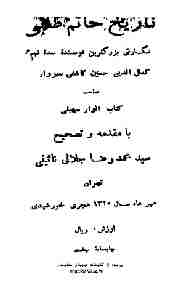 تاریخ حاتم طائی
نگارش بزرگترین نویسنده سده نهم
کمال الدین حسین کاشفی سبزوار
صاحب
کتاب انوار سهیلی
با مقدمه و تصحیح
سید محمد رضا جلالی نائینی
تهران
مهر ماه سال ۱۳۲۰ هجری خورشیدی
ارزش ریال
چاپخانه